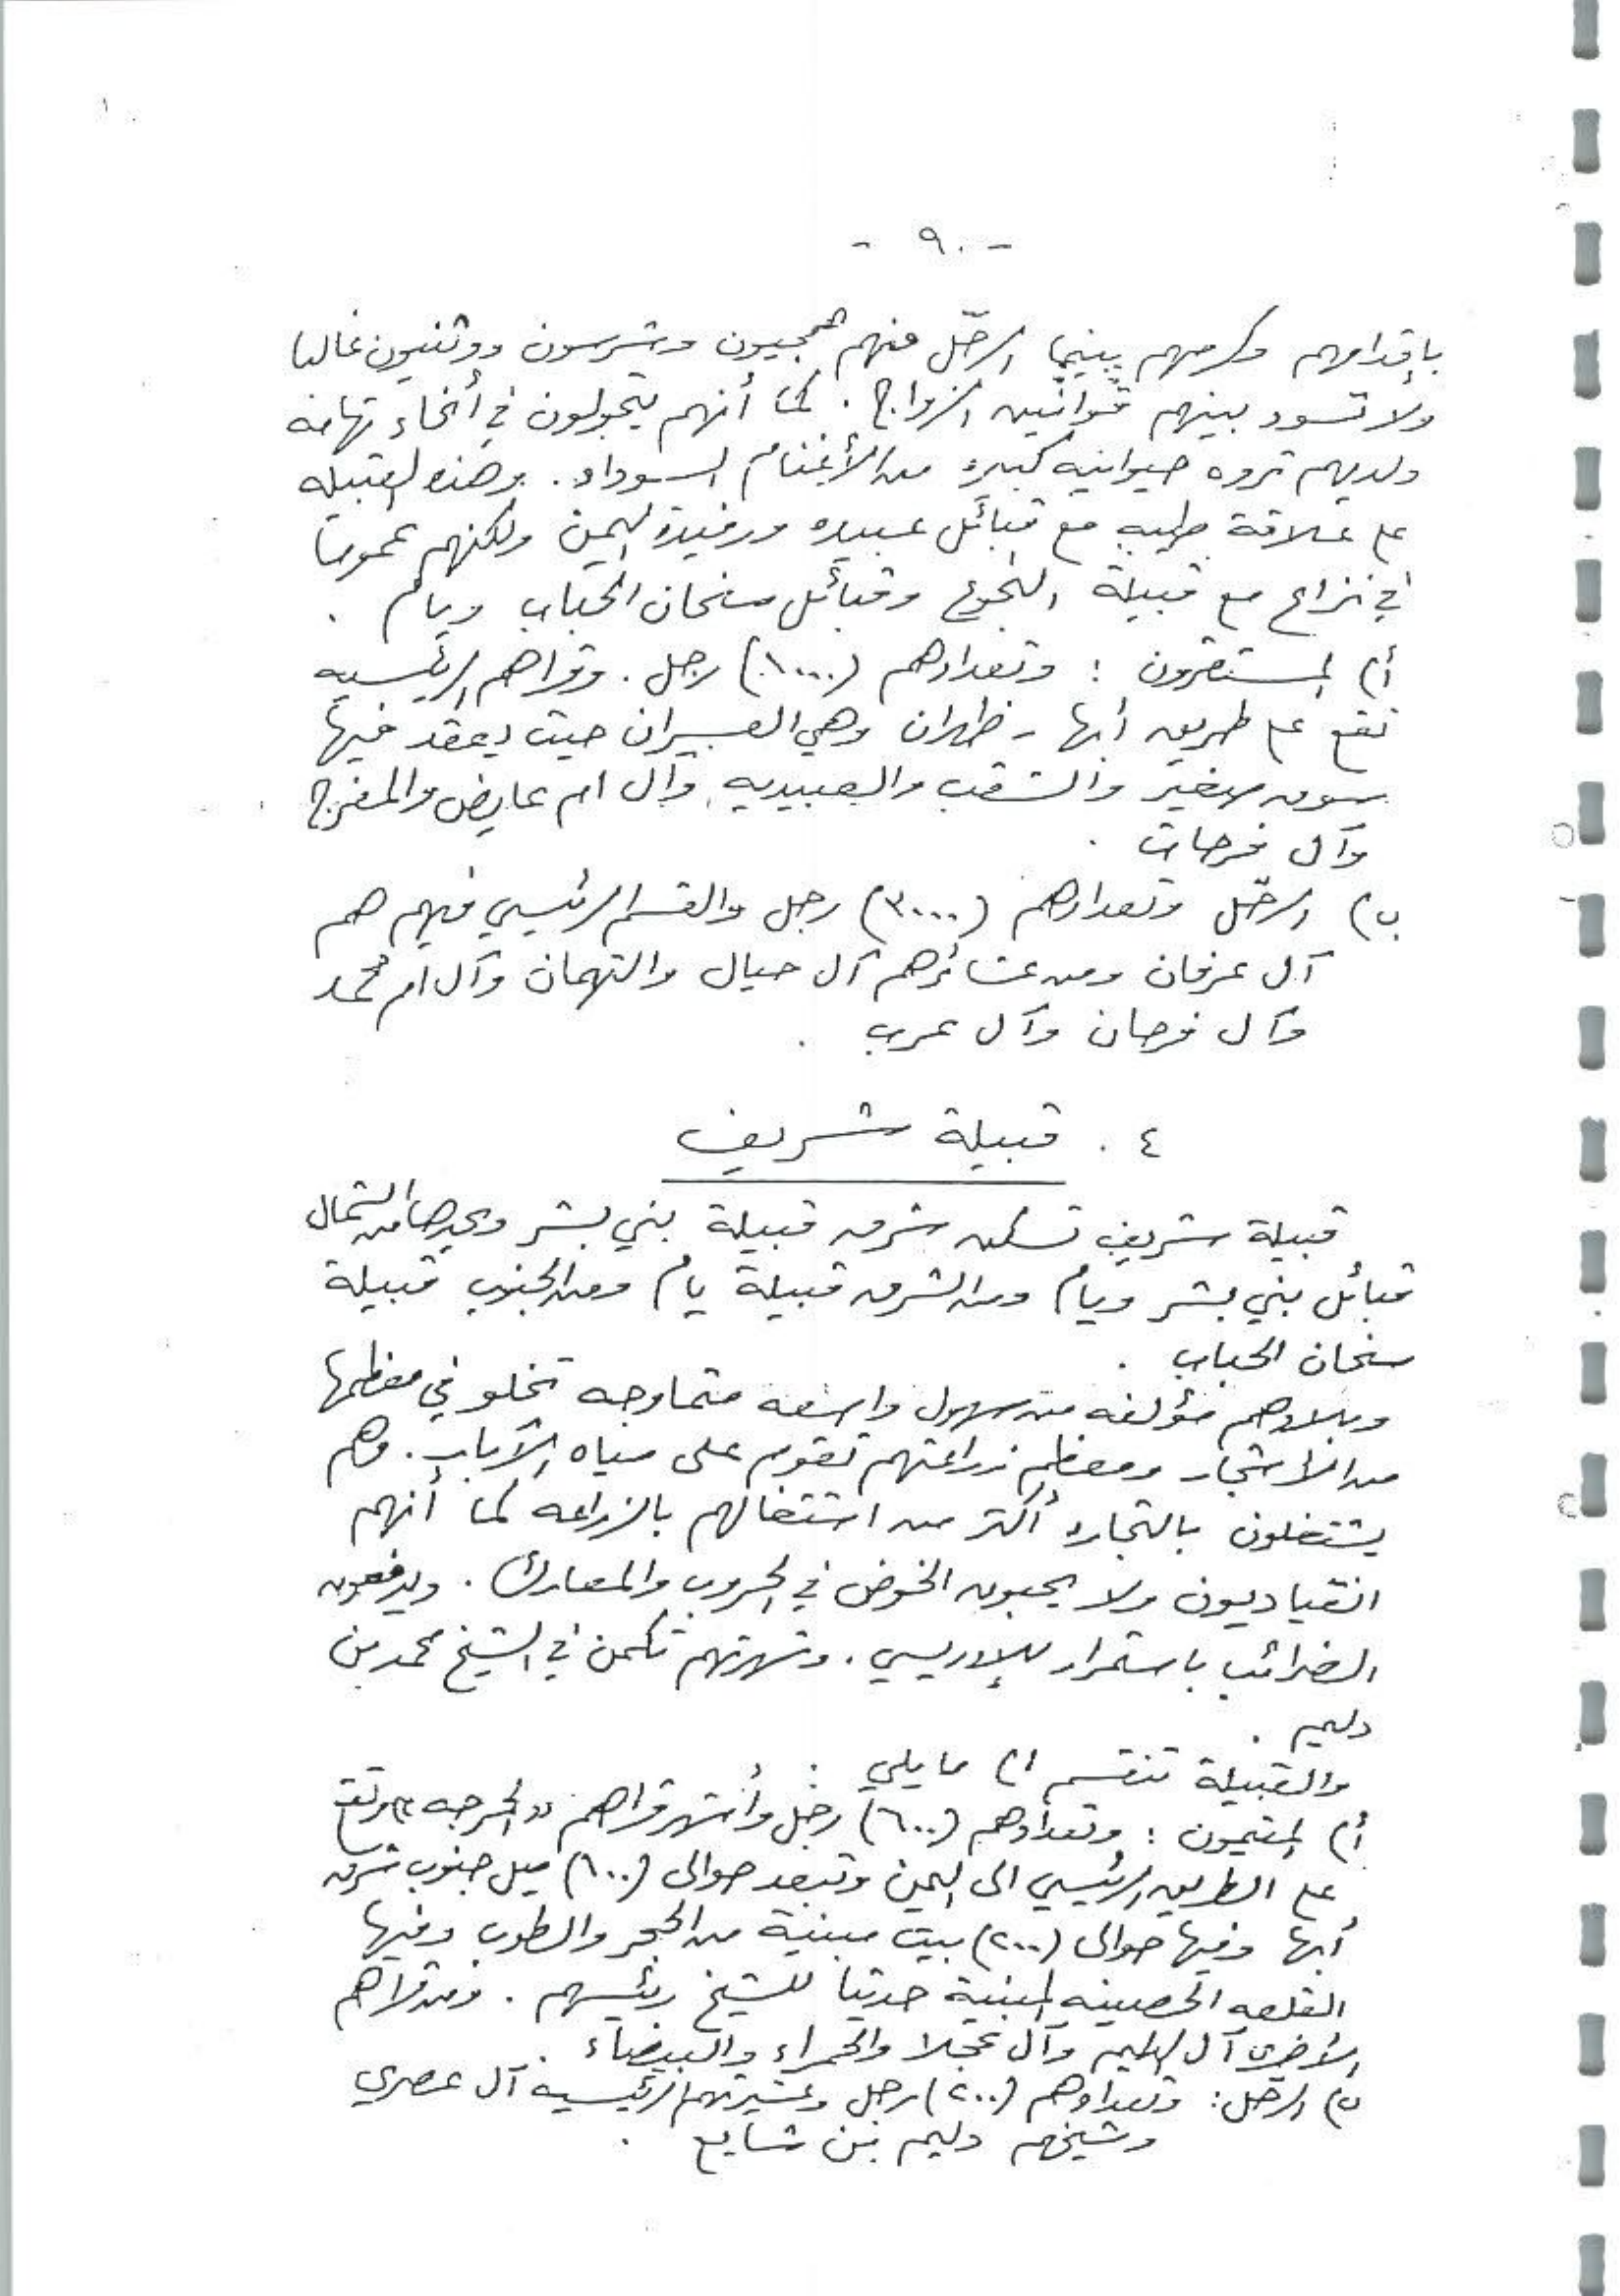 - ٩٠ -
بإقدامهم وكرمهم بينما الرحّل منهم همجيون وشرسون ووثنيون غالبا
ولا تسود بينهم قوانين الزواج . كما أنهم يتجولون في أنحاء تهامه
ولديهم ثروه حيوانيه كبيره من الأغنام السوداء . وهذه القبيله
على علاقة طيبه مع قبائل عبيده ورفيدة اليمن ولكنهم عموما
في نزاع مع قبيلة النخوع وقبائل سنحان الحباب ويام .
أ) المستقرون : وتعدادهم (١٠٠٠) رجل . وقراهم الرئيسيه
تقع على طريق أبها - ظهران وهي العسيران حيث يعقد فيها
سوق صغير والشقب والعبيديه وآل ام عايض والمفرج
وآل فرحان .
ب) الرحّل وتعدادهم (٣٠٠٠) رجل والقسم الرئيسي فيهم هم
آل عرفان ومن عشائرهم آل حيال والتهمان وآل ام محمد
وآل فرحان وآل عرب .
٤ . قبيلة شريف
قبيلة شريف تسكن شرق قبيلة بني بشر ويحدها من الشمال
قبائل بني بشر ويام ومن الشرق قبيلة يام ومن الجنوب قبيلة
سنحان الحباب .
وبلادهم مؤلفه من سهول واسعه متماوجه تخلو في معظمها
من الاشجار ومعظم زراعتهم تقوم على مياه الآبار . وهم
يشتغلون بالتجاره أكثر من اشتغالهم بالزراعه كما أنهم
انقياديون ولا يحبون الخوض في الحروب والمعارك . ويدفعون
الضرائب باستمرار للإدريسي . وشهرتهم تكمن في الشيخ محمد بن
دليم .
والقبيلة تنقسم الى ما يلي :
أ) المقيمون : وتعدادهم (٦٠٠) رجل وأشهر قراهم " الحرجه " وتقع
على الطريق الرئيسي الى اليمن وتبعد حوالى (١٠٠) ميل جنوب شرق
أبها وفيها حوالى (٢٠٠) بيت مبنية من الحجر والطوب وفيها
القلعه الحصينه المبنية حديثا للشيخ رئيسهم . ومن قراهم
الأخرى آل وآل عجلا والحمراء والبيضاء .
ب) الرحل : وتعدادهم (٢٠٠) رجل وعشيرتهم الرئيسية آل عصري
وشيخهم دليم بن شايع .